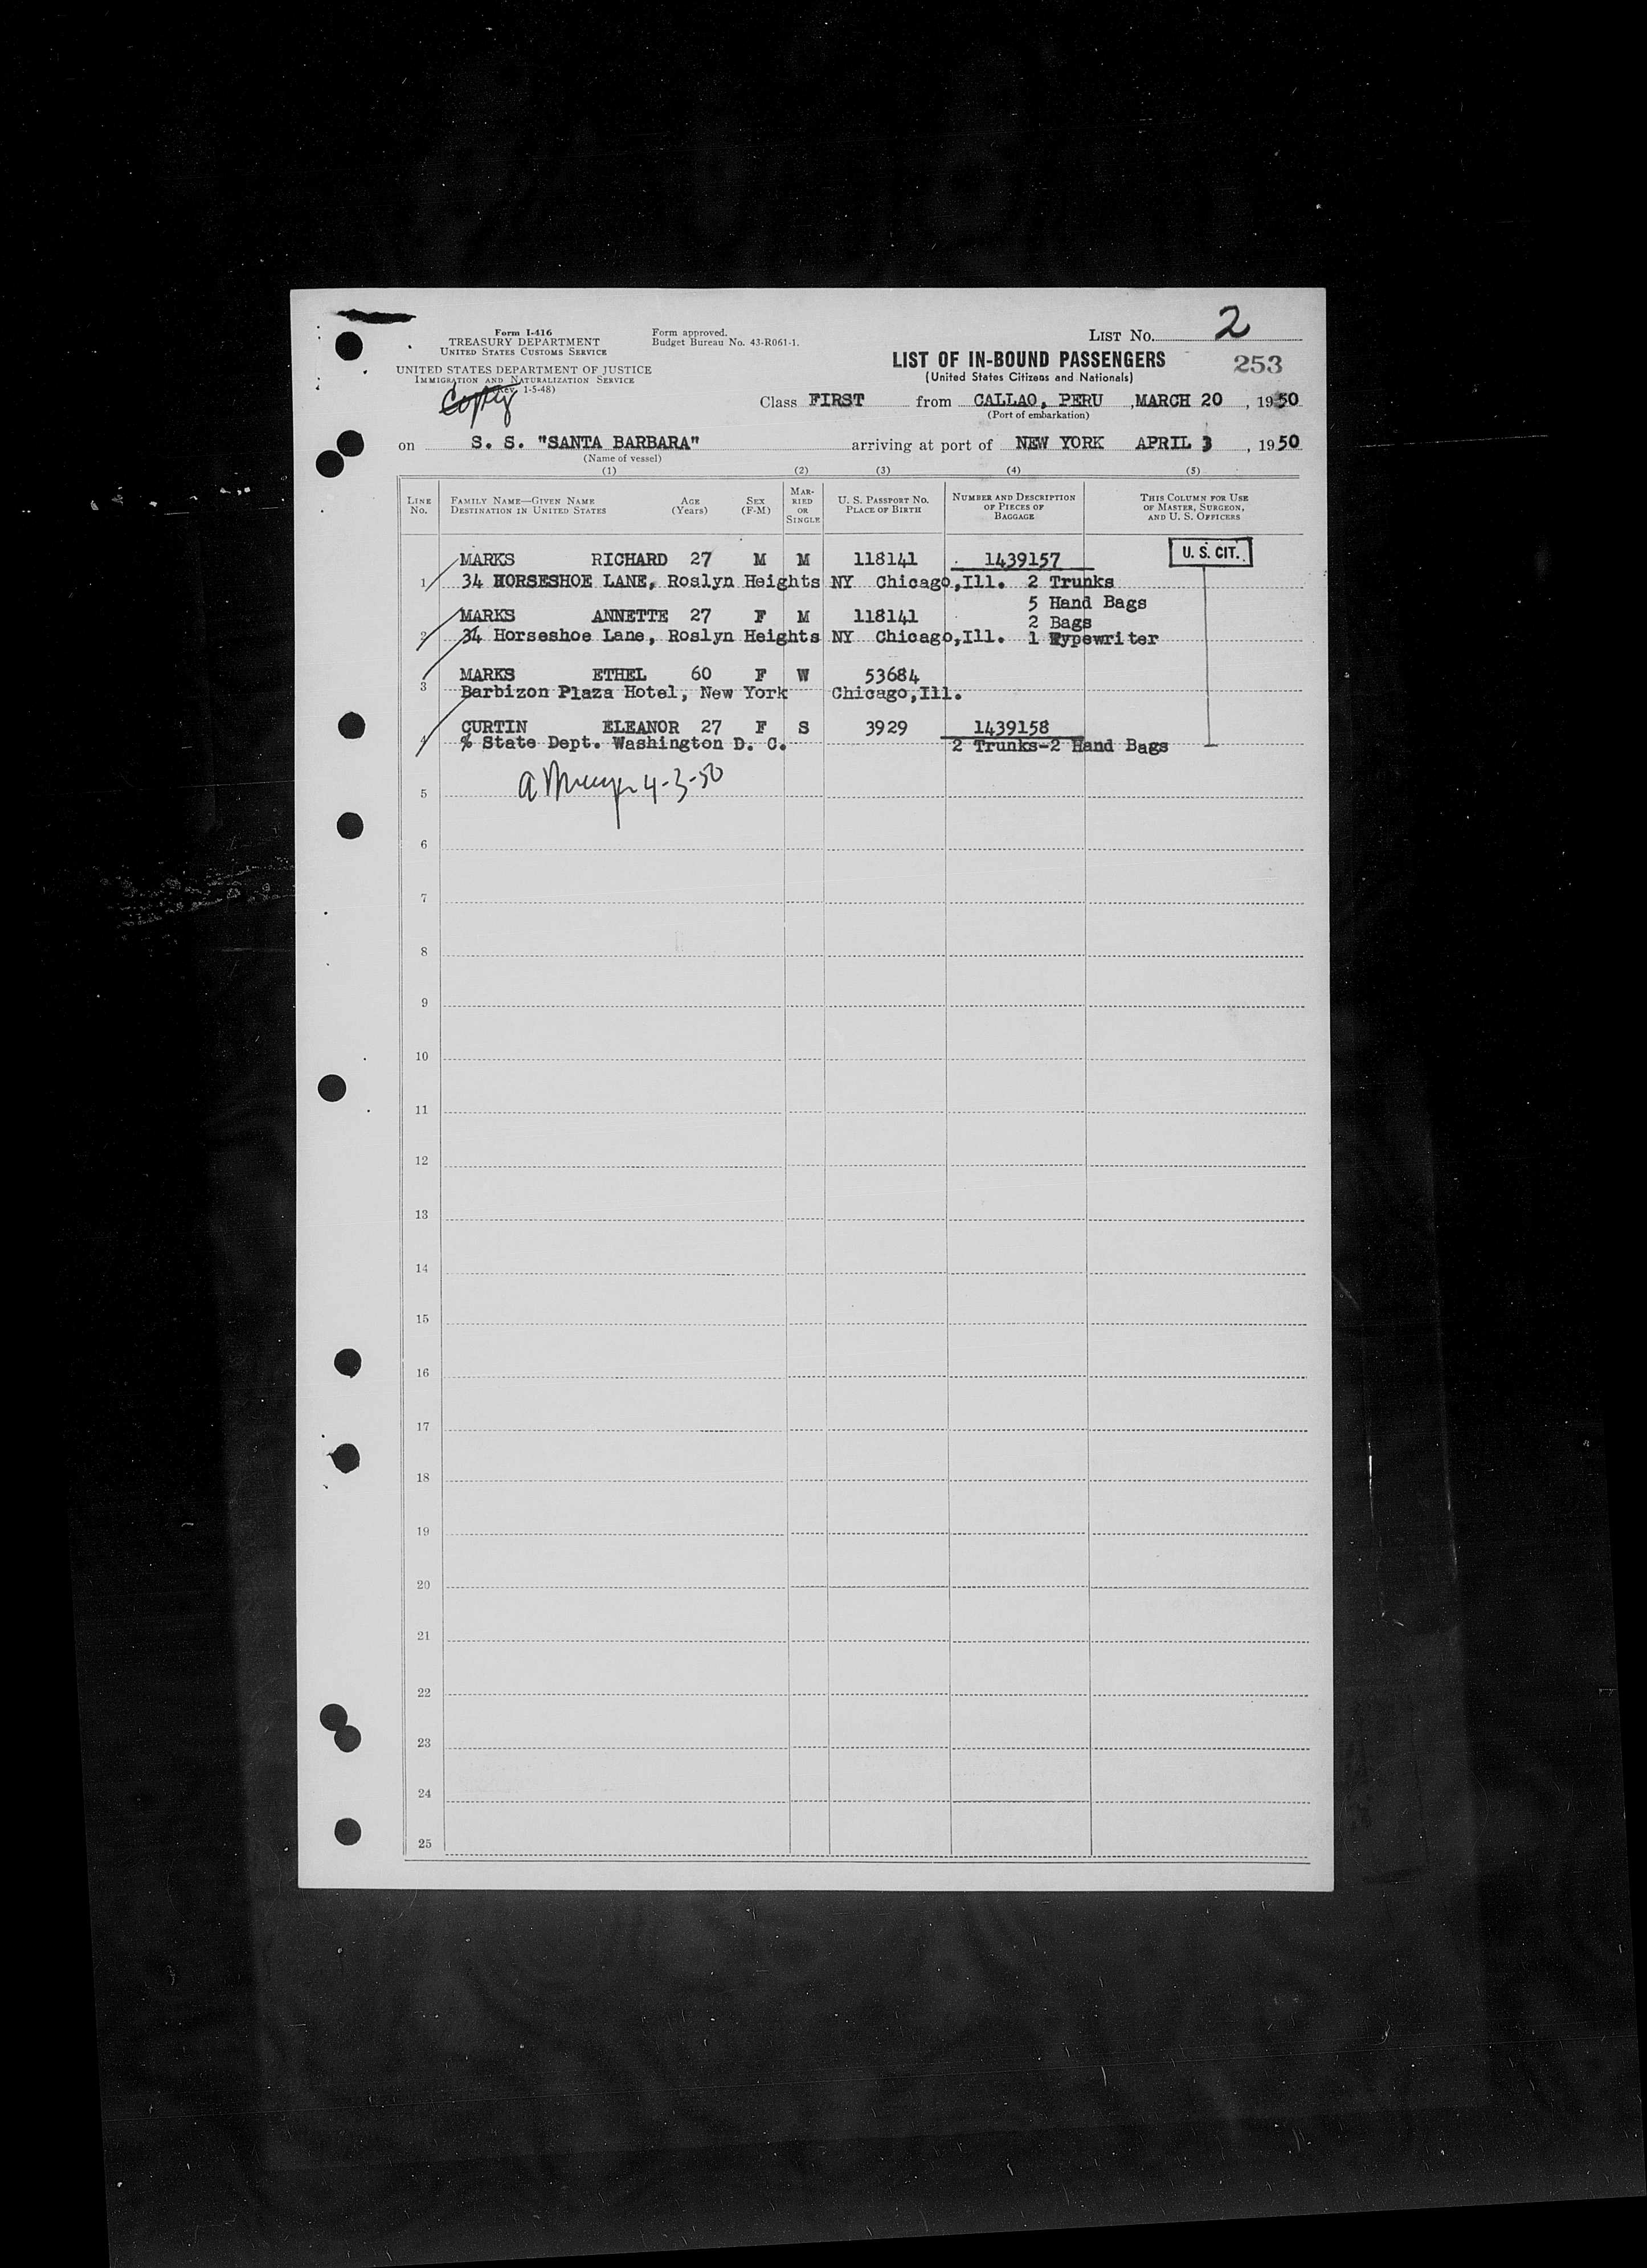 Form I-416
TREASURY DEPARTMENT
UNITED STATES CUSTOMS SERVICE
UNITED STATES DEPARTMENT OF JUSTICE
IMMIGRATION AND NATURALIZATION SERVICE
(Rev. 1-5-48)
Copy
Form approved.
Budget Bureau No. 43-R061-1.
LIST No. 2
LIST OF IN-BOUND PASSENGERS
253
(United States Citizens and Nationals)
Class FIRST from CALLAO, PERU , MARCH 20 , 1950
(Port of embarkation)
on S. S. "SANTA BARBARA" arriving at port of NEW YORK APRIL 3 , 1950
(Name of vessel)
(1) (2) (3) (4) (5)
LINE No. FAMILY NAME—GIVEN NAME DESTINATION IN UNITED STATES AGE (Years) SEX (F-M) MARRIED OR SINGLE U. S. PASSPORT No. PLACE OF BIRTH NUMBER AND DESCRIPTION OF PIECES OF BAGGAGE THIS COLUMN FOR USE OF MASTER, SURGEON, AND U. S. OFFICERS
MARKS RICHARD 27 M M 118141 1439157 U. S. CIT.
1 34 HORSESHOE LANE, Roslyn Heights NY Chicago,Ill. 2 Trunks
5 Hand Bags
MARKS ANNETTE 27 F M 118141 2 Bags
2 34 Horseshoe Lane, Roslyn Heights NY Chicago,Ill. 1 Typewriter
MARKS ETHEL 60 F W 53684
3 Barbizon Plaza Hotel, New York Chicago,Ill.
CURTIN ELEANOR 27 F S 3929 1439158
4 % State Dept. Washington D. C. 2 Trunks-2 Hand Bags
5 4-3-50
6
7
8
9
10
11
12
13
14
15
16
17
18
19
20
21
22
23
24
25